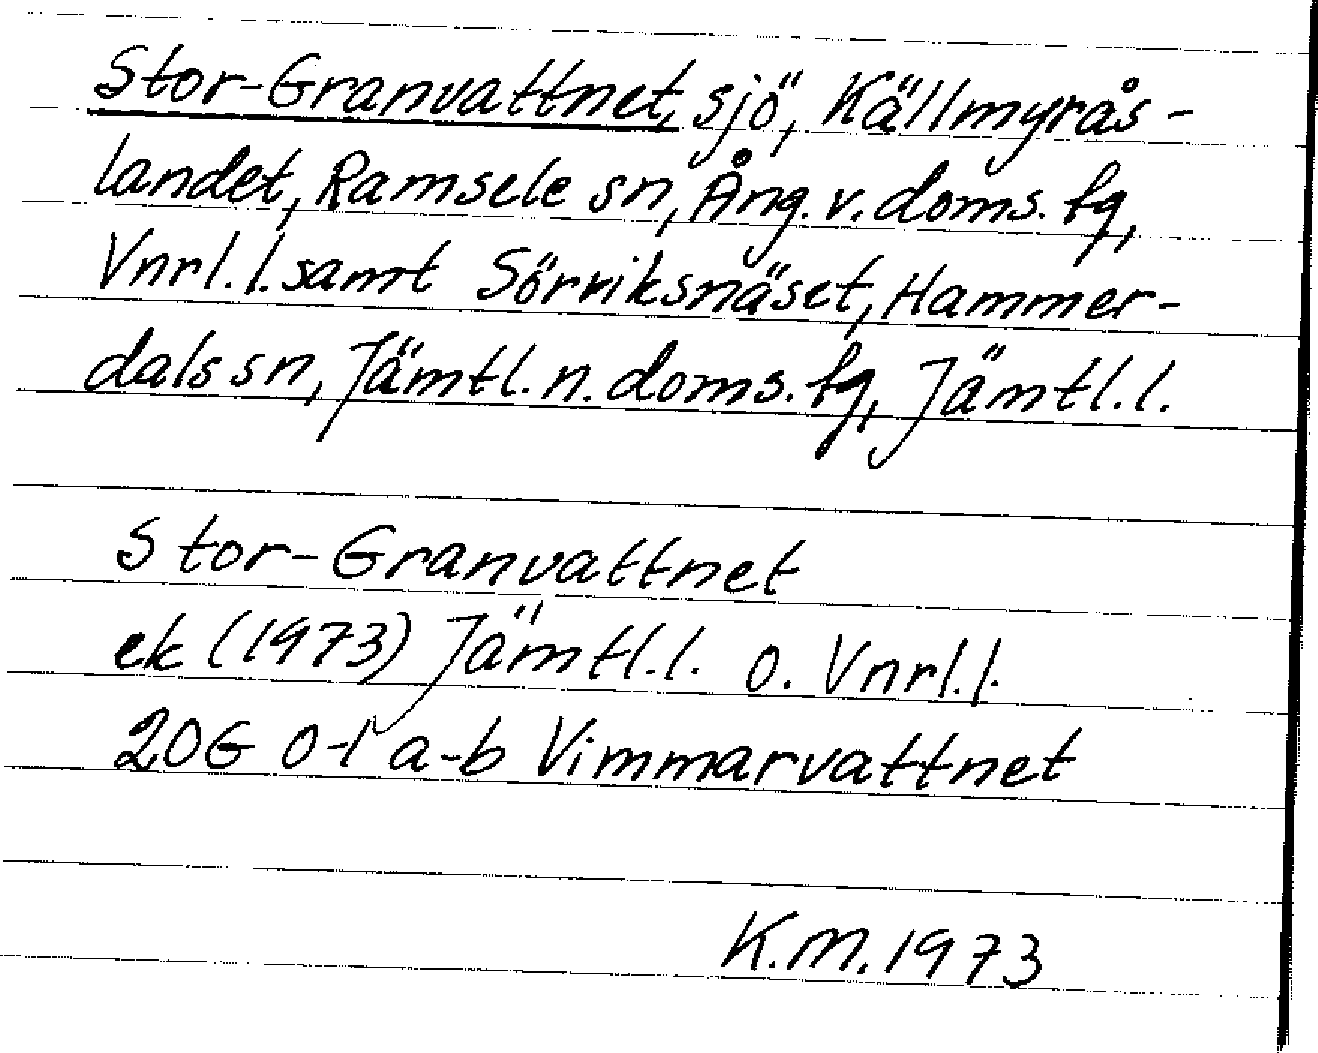 Stor-Granvattnet, sjö, Källmyrås-
landet, Ramsele sn, Ång. v. doms. fg,
Vnrl. l. samt Sörviksnäset, Hammer-
dals sn, Jämtl. n. doms. fg, Jämtl. l.
Stor-Granvattnet
ek (1973) Jämtl. l. o. Vnrl. l.
20G 0-1 a-b Vimmarvattnet
K.M. 1973